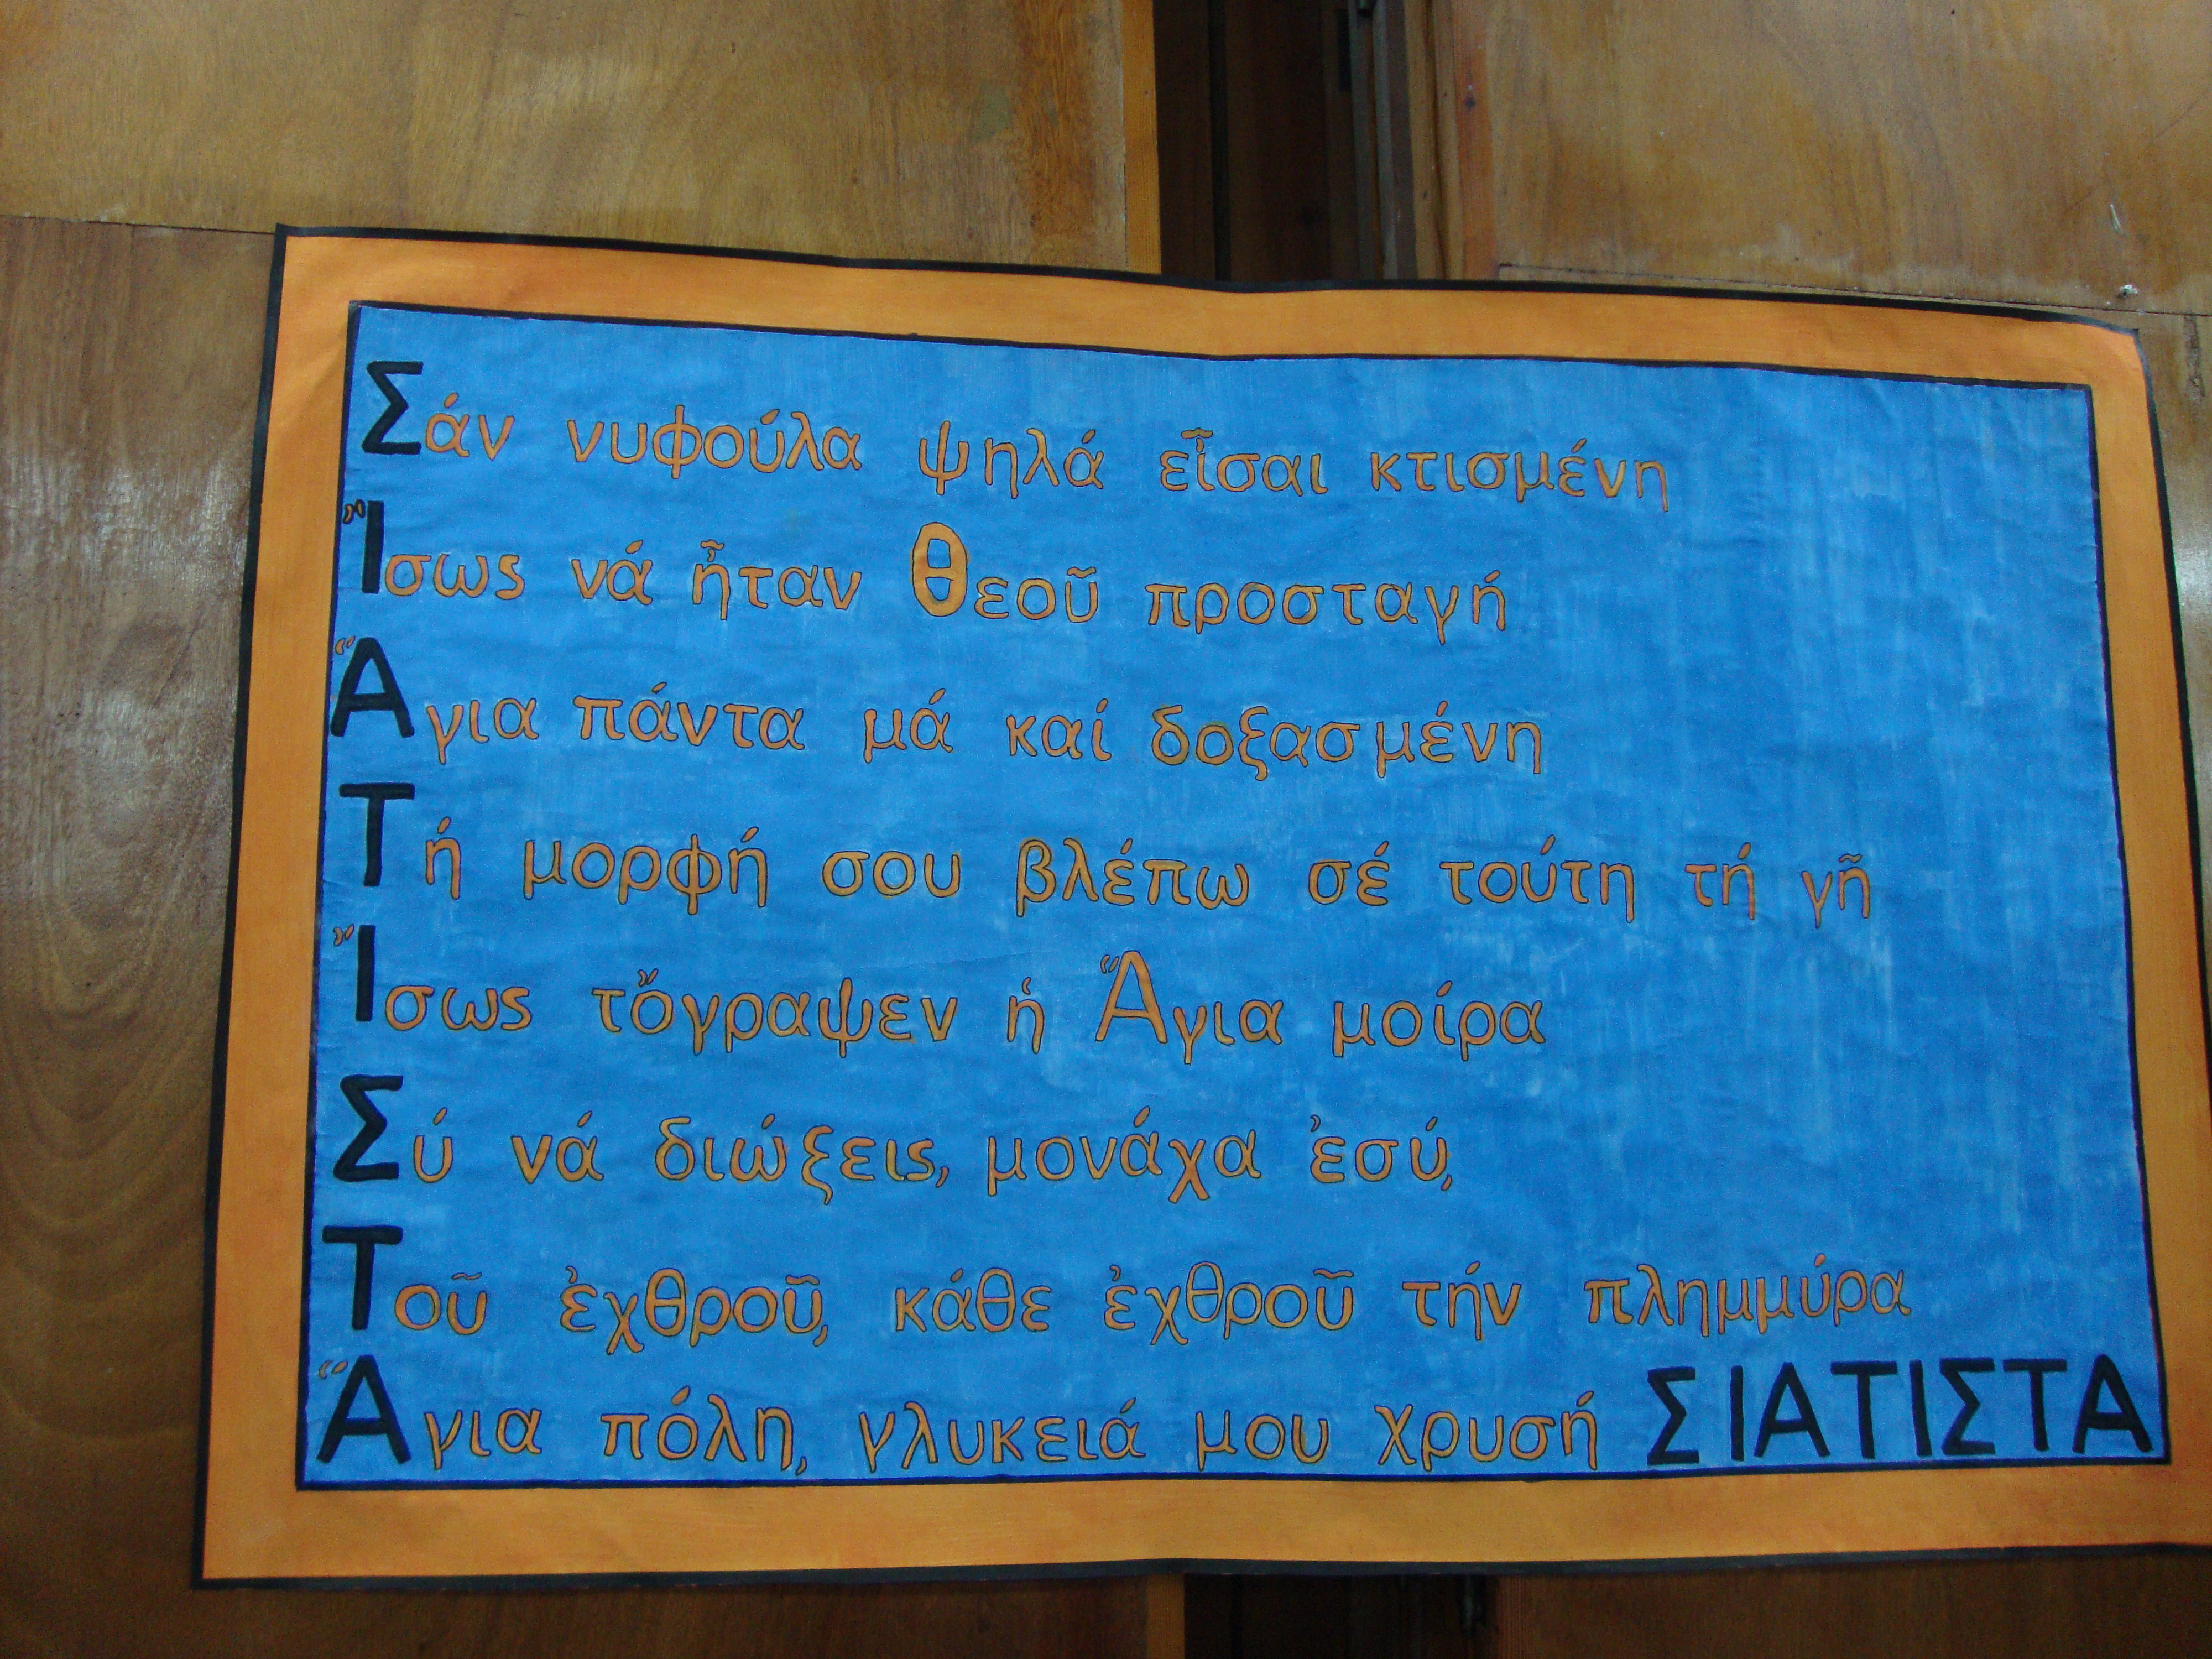 Σάν νυφούλα ψηλά εἶσαι κτισμένη
Ἴσως νά ἦταν Θεοῦ προσταγή
Ἅγια πάντα μά καί δοξασμένη
Τή μορφή σου βλέπω σέ τούτη τή γῆ
Ἴσως τὄγραψεν ἡ Ἅγια μοίρα
Σύ νά διώξεις, μονάχα ἐσύ,
Τοῦ ἐχθροῦ, κάθε ἐχθροῦ τήν πλημμύρα
Ἅγια πόλη, γλυκειά μου χρυσή ΣΙΑΤΙΣΤΑ